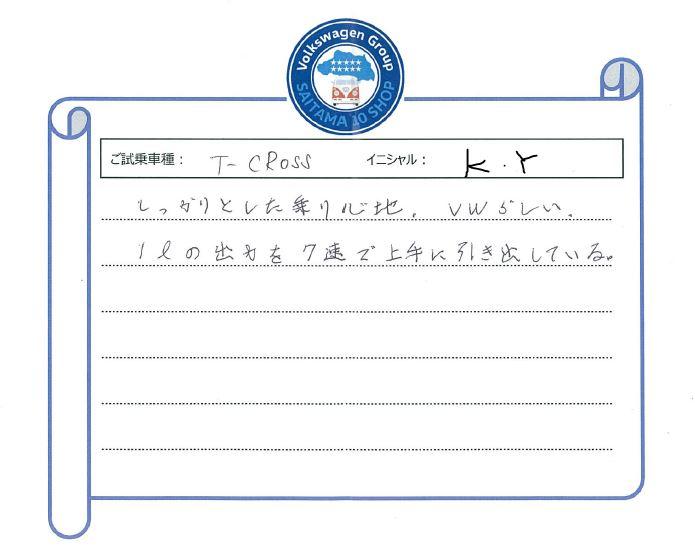 Volkswagen Group
SAITAMA 10 SHOP
ご試乗車種： T-CROSS イニシャル： K.Y
しっかりとした乗り心地。VWらしい。
1ℓの出力を7速で上手に引き出している。